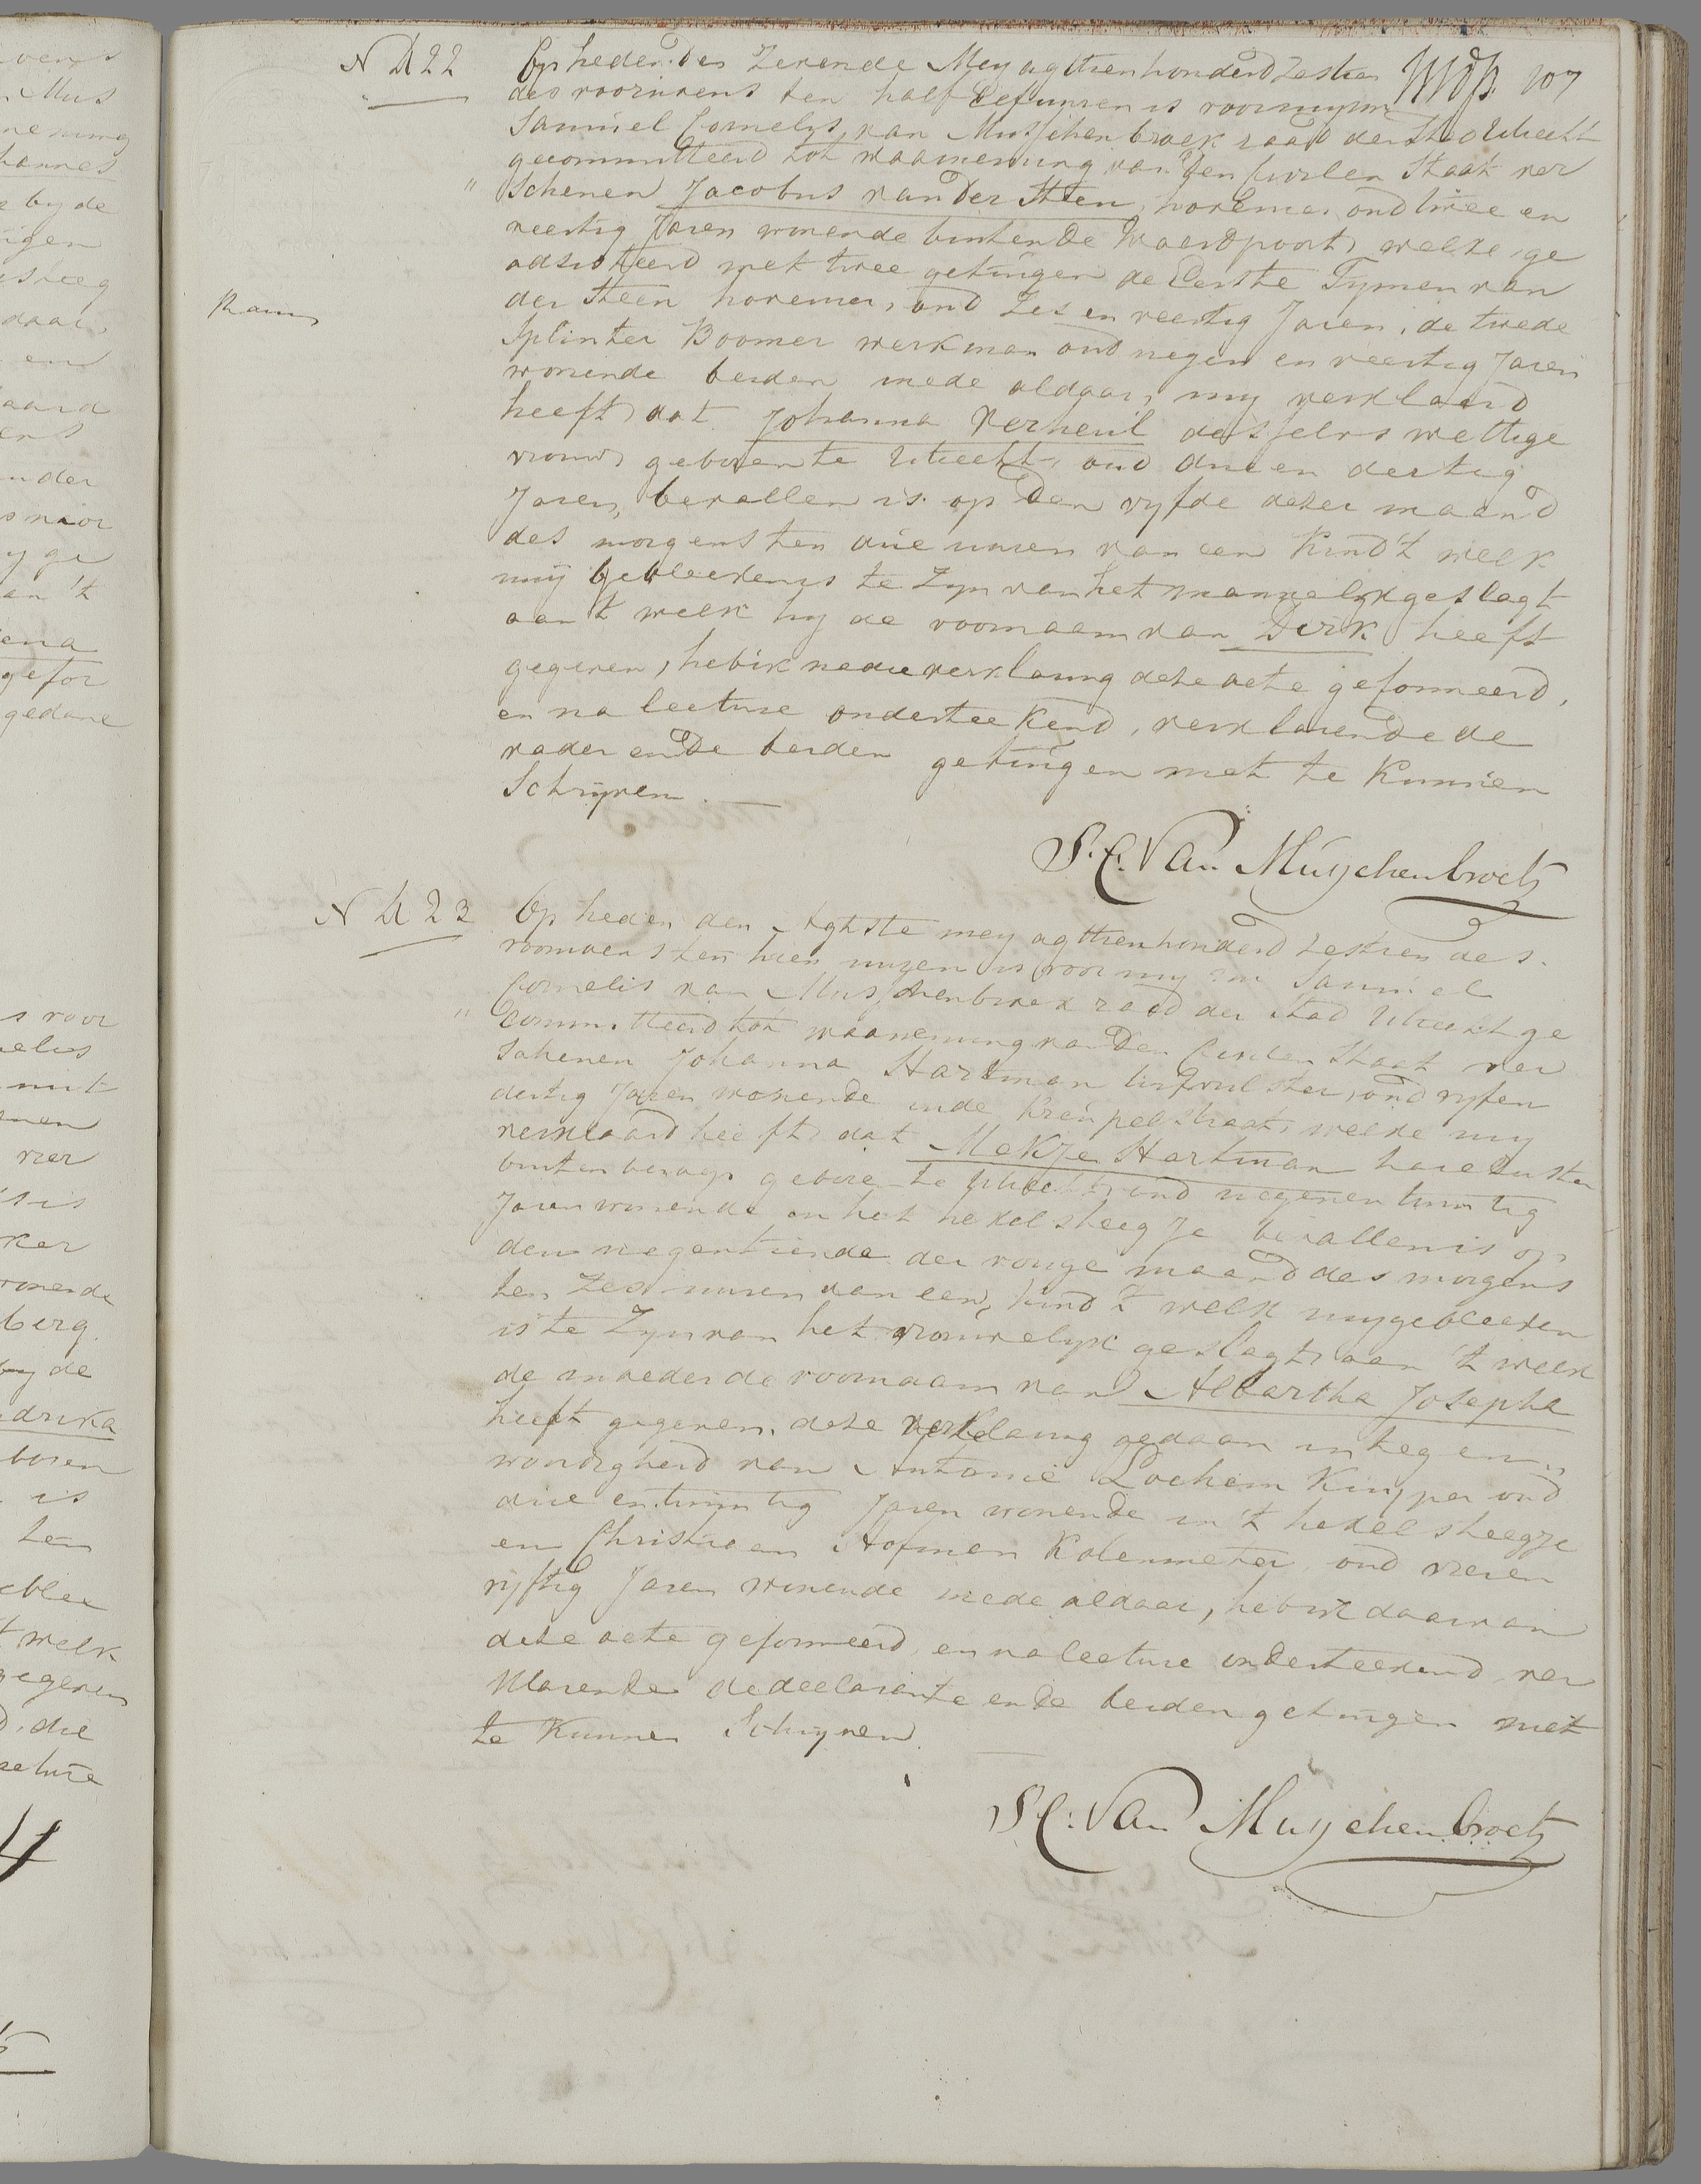 N 422
Op heden den Zevende Mey agttienhonderd Zestien 107
des voordens ten half Elf uuren is voor my
Samuel Cornelis van Musschenbroek raad der Stad Utrecht
gecommitteerd tot waarneming van den Civilen Staat ver
schenen Jacobus van der Steen, hovenier, oud twee en
veertig Jaren wonende buiten de Waerdpoort, welke ge
adsisteerd met twee getuigen de Eerste Tymen van
der Steen hovenier, oud Zes en veertig Jaren, de twede
Rains
Splinter Boomer werkman oud negen en veertig Jaren
wonende beiden mede aldaar, my verklaard
heeft dat Johanna Verheul deszelvs wettige
vrouw geboren te Utrecht, oud drie en dertig
Jaren, bevallen is op den vyfde dezer maand
des morgens ten drie uuren van een Kind 't welk
mij gebleeken is te Zyn van het mannelyk geslagt
aan 't welk hy de voornaam van Dirk heeft
gegeven, heb ik na die verklaring deze acte geformeerd,
en na lecture onderteekend, verklarende de
vader en de beiden getuigen niet te kunnen
Schrijven.
S. C. Van Musschenbroek
N 423
Op heden den Agtste mey agttienhonderd Zestien des
voormiddens ten tien uuren is voor my Samuel
Cornelis van Musschenbroek raad der Stad Utrecht ge
committeerd tot waarneming van den Civilen Staat ver
schenen Johanna Hartman oud vyf en
dertig Jaren wonende in de Kreupelstraat, welke my
verklaard heeft, dat Mekje Hartman hare Zuster
buiten beroep gebore te Utrecht, oud negen en twintig
Jaren wonende in het hekelsteegje bevallen is op
den negentiende der vorige maand des morgens
ten Zes uuren van een kind 't welk my gebleeken
is te Zyn van het vrouwelyk geslagt, aan 't welk
de moeder de voornaam van Albartha Josepha
heeft gegeven, deze verklaring gedaan in tegen
woordigheid van Antonie Lochem Kuyper oud
drie en twintig Jaren wonende in 't hekelsteegje
en Christiaan Hofman Kolenmeter, oud vier en
vyftig Jaren wonende mede aldaar, heb ik daarvan
deze acte geformeerd, en na lecture onderteekend ver
klarende de declarante en de beiden getuigen niet
te kunnen Schryven.
S C: Van Musschenbroek